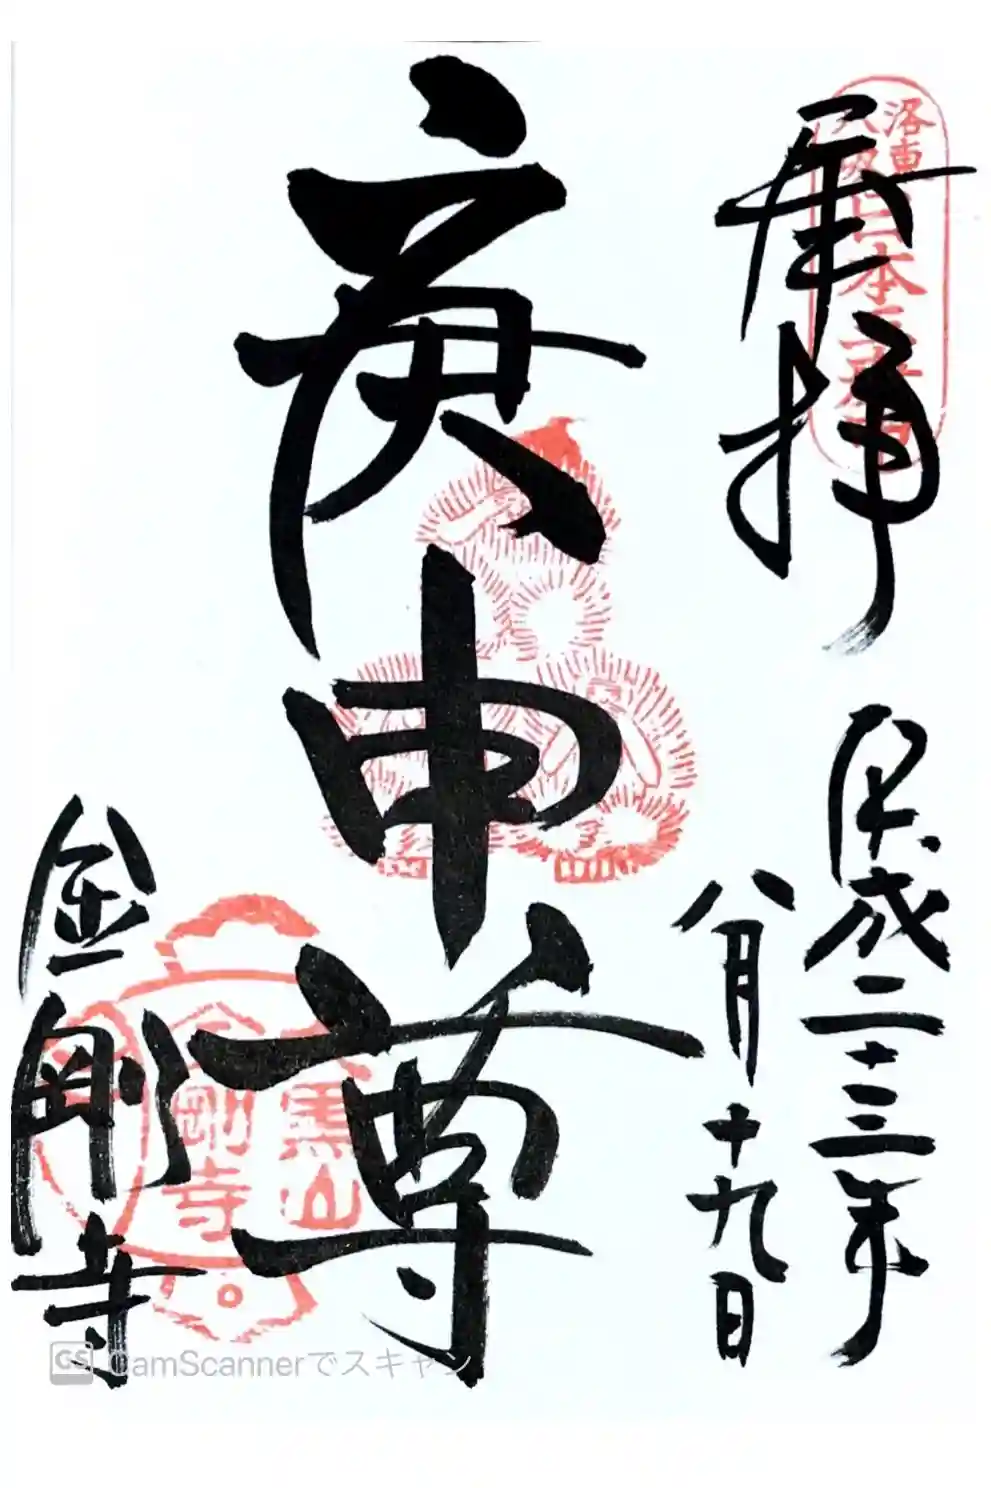 奉拝
洛東
八坂
日本三庚申
平成二十三年
八月十九日
庚申尊
黒山
金剛寺
金剛寺
CS CamScannerでスキャン